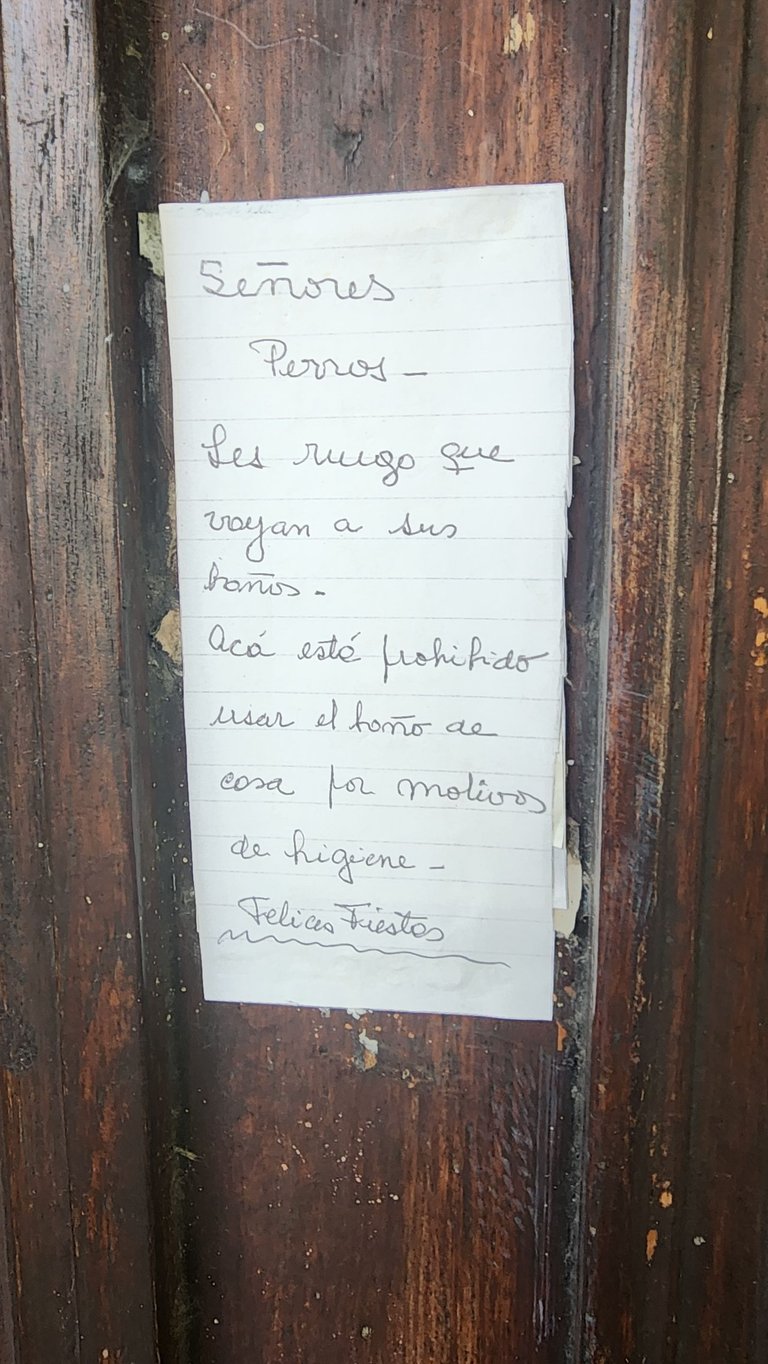 Señores
Perros -
Les ruego que
vayan a sus
baños -
Acá está prohibido
usar el baño de
casa por motivos
de higiene -
Felices Fiestas